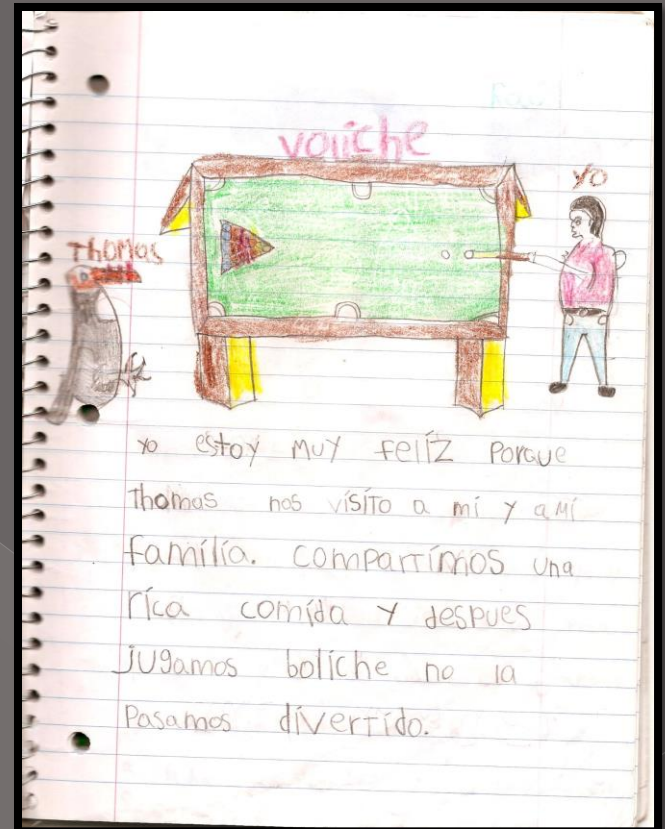 voliche
yo
Thomas
yo estoy muy feliz porque
Thomas nos visito a mi y a mi
familia. compartimos una
rica comida y despues
jugamos boliche no la
Pasamos divertido.